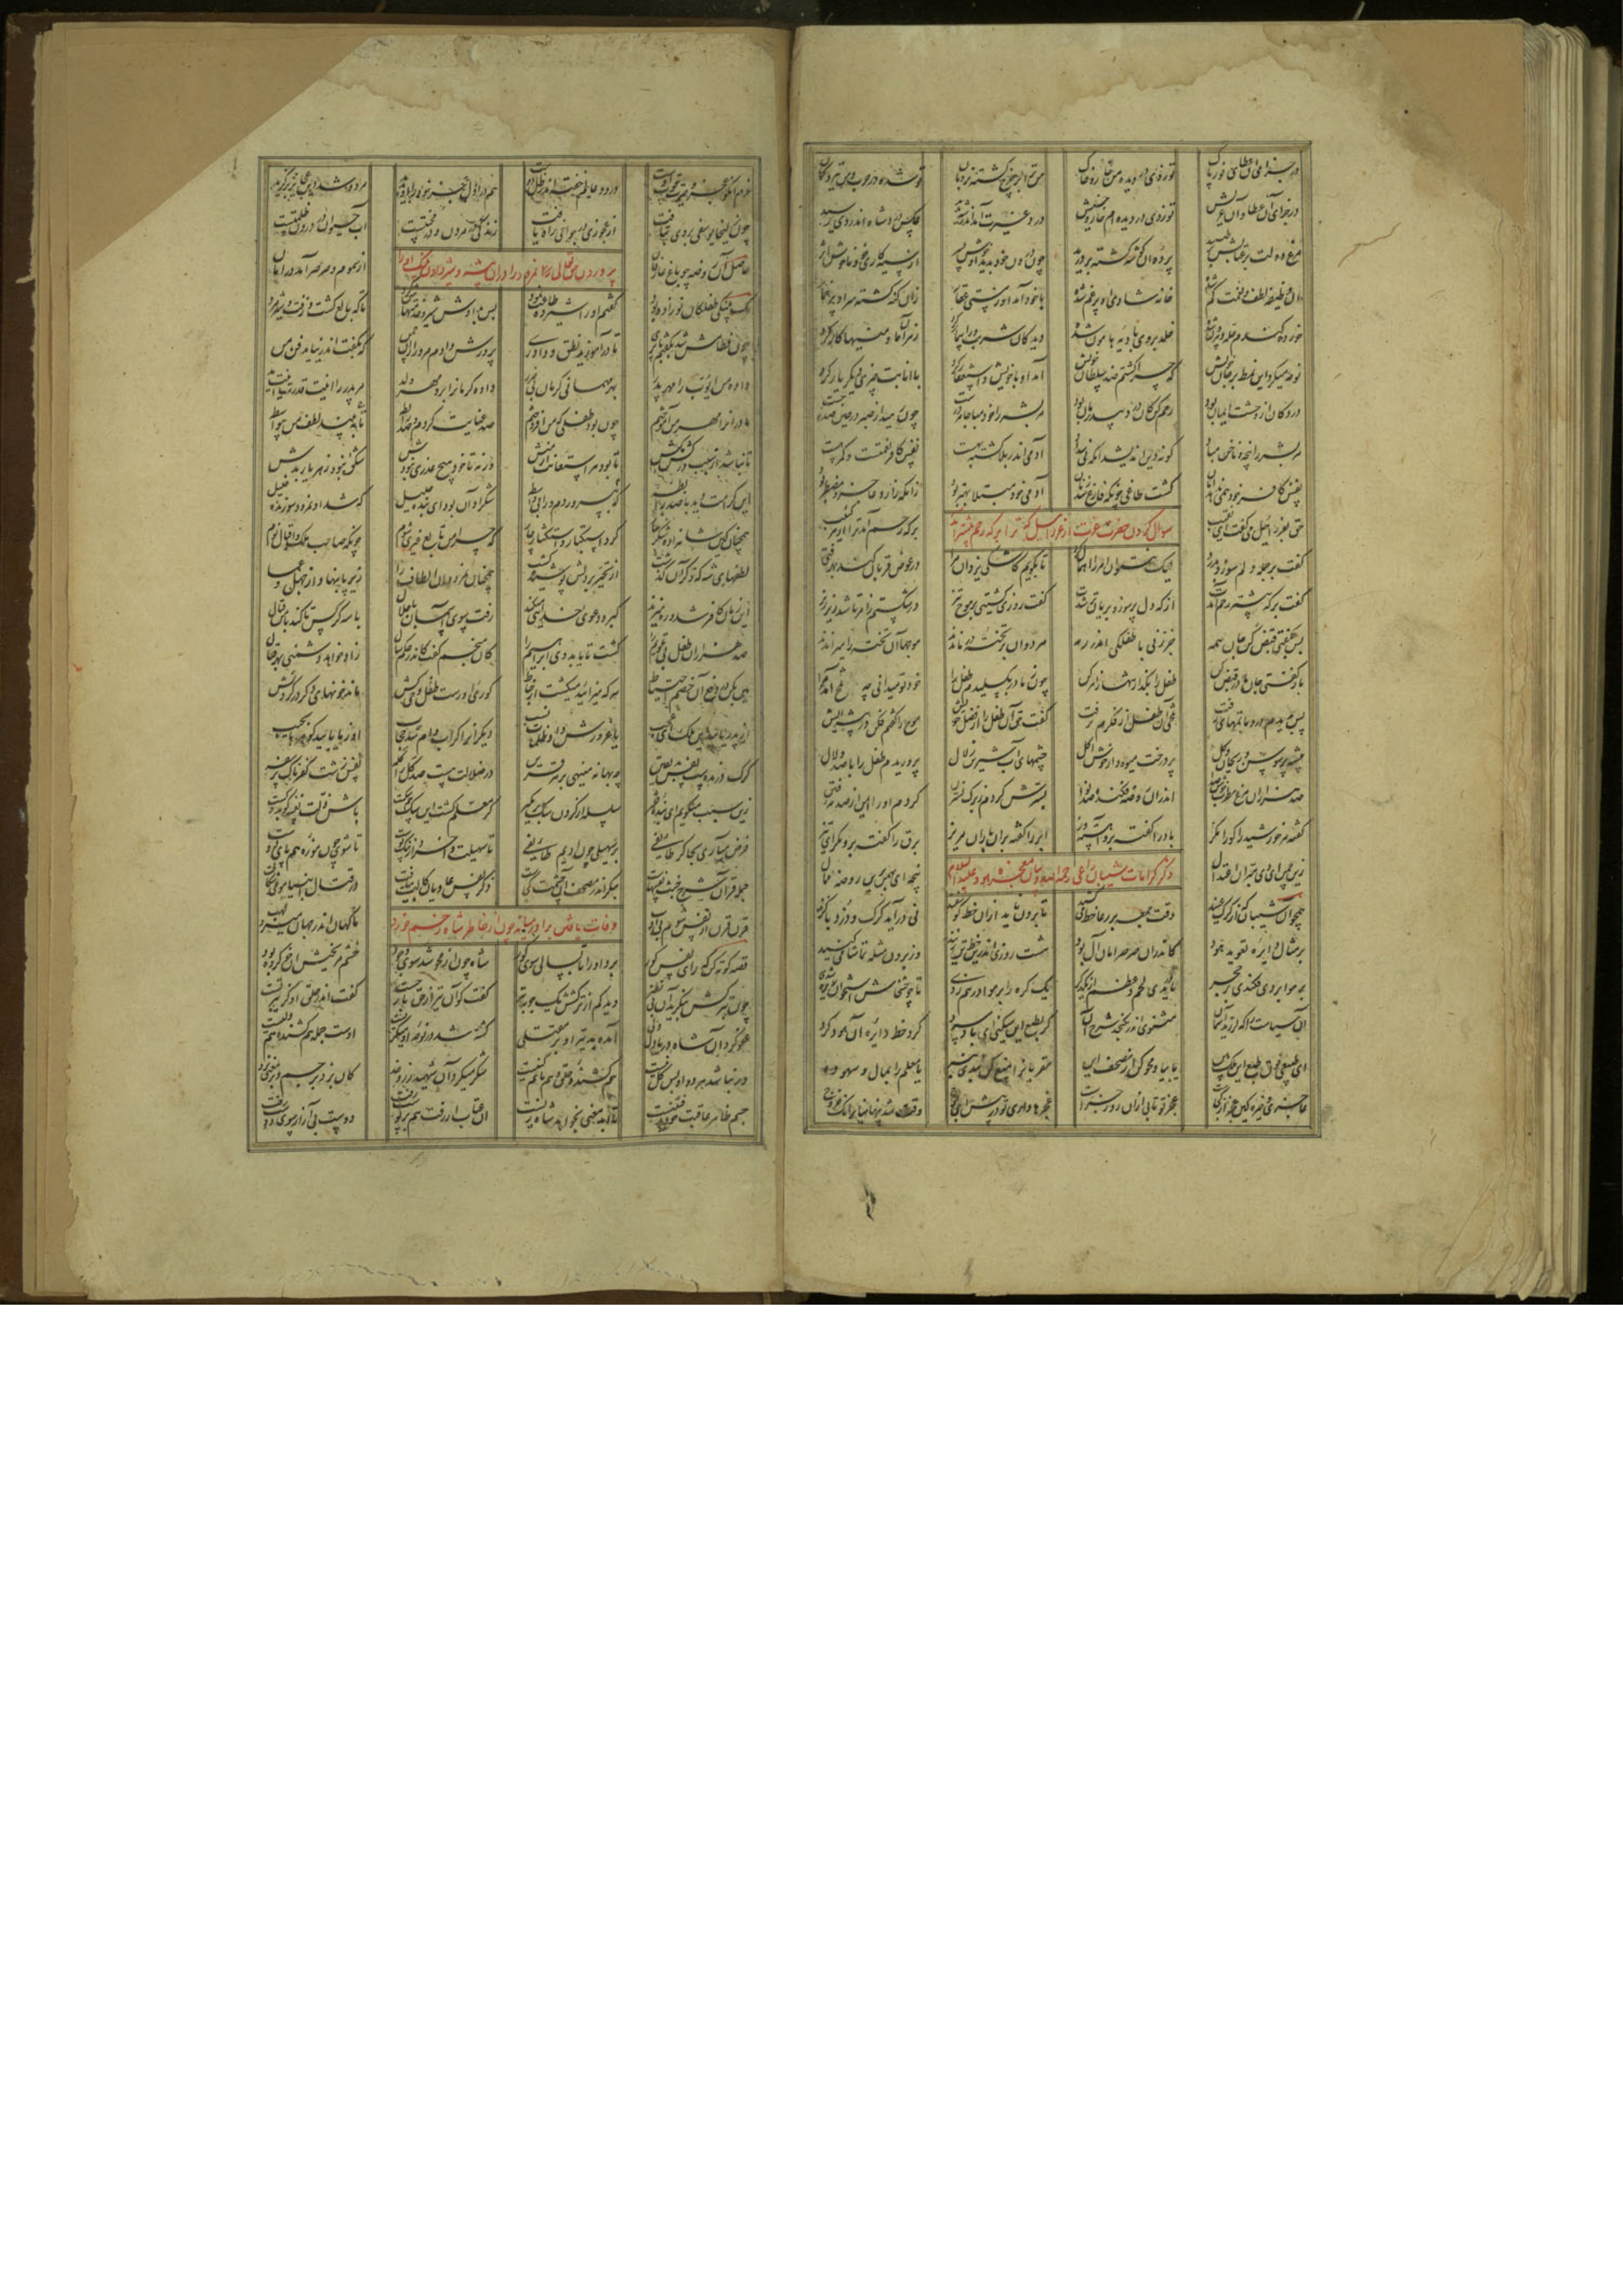 در جزای آن عطای نور پاک تو زدی در دیده من خار و خاک من ترا بر چرخ گشته نردبان تو شده در حرب من تیر و کمان
درد غیرت آمد اندر شه پدید عکس درد شاه اندر وی رسید
مرغ دولت در عتابش بر طپید پرده آن گوشه گشته بر درید چون درون خود بدید آن خوش پسر از سیه کاری خود
آن وظیفه لطف و نعمت کم شده خانه شادی او پر غم شده با خود آمد او ز مستی عقار زان گنه گشته سر او پر خمار
خورده گندم حله زو بیرون شده خلد بر وی بادیه هامون شده دید کان شربت ورا بیمار کرد زهر آن ما و منیها کار کرد
نوحه میکرد این نمط بر جان خویش که چرا گشتم ضد سلطان خویش آمد او با خویش و استغفار کرد با انابت چیزی دیگر یار کرد
درد کان از وحشت ایمان بود رحم کن کان درد بیدرمان بود مر بشر را خود مبا جامه درست چون رهید از صبر در حین صدر جست
مر بشر را پنجه و ناخن مباد کو نه دین اندیشد آنکه نی سداد آدمی اندر بلا کشته بهست نفس کافر نعمتست و گمرهست
نفس کافر خود همی ندهد امان گشت طاغی چونکه فارغ شد ز نان آدمی خود مبتلا بهتر بود زانکه زار و عاجز و مضطر بود
سوال کردن حضرت عزت از عزرائیل که ترا بر که رحم بیشتر آمد
حق بعزرائیل می گفت ای نقیب بر که رحم آمد ترا از هر کئیب
گفت بر جمله دلم سوزد بدرد لیک نتوان امر را اهمال کرد تا بگویم کاشکی یزدان مرا در عوض قربان کند بهر فتی
گفت بر که بیشتر رحم آمدت از که دل پر سوز و بریانتر شدت گفت روزی کشتیی بر موج تیز در شکستم ز امر تا شد ریز ریز
پس بگفتی قبض کن جان همه جز زنی با طفلکی اندر رمه مرد و آن بر تخته در ماندند موجها آن تخته را میراندند
باز گفتی جان مادر قبض کن طفل را بگذار تنها ز امر کن چون ز مادر بگسلیدم طفل را خود تو میدانی چه تلخ آمد مرا
پس بدیدم درد ماتمهای زفت تلخی آن طفل از فکرم نرفت گفت حق آن طفل را از فضل خویش موج را گفتم فکن در بیشه ایش
بیشه پر سوسن و ریحان و گل پر درخت میوه دار و خوش اکل چشمهای آب شیرین زلال پروریدم طفل را با صد دلال
صد هزاران مرغ مطرب خوش صدا اندران روضه فکنده صد نوا بسترش کردم ز برگ نسترن کردم او را ایمن از صدمه فتن
گفته من خورشید را کورا مگز باد را گفته برو آهسته وز ابر را گفته بر او باران مریز برق را گفته برو مگرای تیز
زین چمن ای دی مبر آن اعتدال پنجه ای بهمن برین روضه ممال
ذکر کرامات شیبان راعی رحمه الله و بیان معجزه هود علیه السلام
همچو آن شیبان که از گرگ عنید وقت جمعه بر رعا خط میکشید تا برون ناید از آن خط گوسفند نی درآید گرگ و دزد با گزند
بر مثال دایره تعویذ هود کاندران صرصر امان آل بود هشت روزی اندرین خط تن زنید وز برون مثله تماشا میکنید
بر هوا بردی فکندی بر حجر تا دریدی لحم و عظم از یکدگر یک گره را بر هوا در هم زدی تا چو خشخاش استخوان ریزان شدی
آن سیاست را که لرزید آسمان مثنوی اندر نگنجد شرح آن گر بطبع این میکنی ای باد سرد گرد خط دایره آن هود گرد
ای طبیعی فوق طبع این ملک بین یا بیا و محو کن از مصحف این مقریان را منع کن بندی بنه یا معلم را بمال و سهم ده
عاجزی و خیره کین عجز از کجاست عجز تو تابی از آن روز جزاست عجزها داری تو در پیش ای لجوج وقت شد پنهانیان را نک خروج
خرم آنکو عجز و حیرت قوت اوست در دو عالم خفته اندر ظل دوست هم در اول عجز خود را او بدید مرده شد دین عجایز برگزید
چون زلیخا یوسفی بر وی بتافت از عجوزی در جوانی راه یافت زندگی در مردن و در محنتست آب حیوان در درون ظلمتست
پروردن حق تعالی نمرود را در آن بیشه و شیر دادن پلنگ او را
حاصل آن روضه چو باغ عارفان از سموم و صرصر آمد در امان
یک پلنگی طفلکان نو زاده بود گفتم او را شیر ده طاعت نمود پس بدادش شیر و خدمتهاش کرد تا که بالغ گشت و زفت و شیر مرد
چون فطامش شد بگفتم با پری تا در آموزید نطق و داوری پرورش دادم مر او را زان چمن که بگفت اندر نیاید فن من
داده من ایوب را مهر پدر بهر مهمانی کرمان بی ضرر داده کرمان را برو مهر ولد مر پدر را اینت قدرت اینت ید
مادران را مهر من آموختم چون بود طفلی که من افروختم صد عنایت کردم و صد رابطه تا ببیند لطف من بیواسطه
تا نباشد از سبب در کشمکش تا بود هر استعانت از منش ورنه تا خود هیچ عذری نبودش شکوه نبود ز هر یار بدش
این حضانت دید با صد رابطه که بپروردم ورا بی واسطه شکر او آن بود ای بنده جلیل که شد او نمرود و سوزنده خلیل
همچنان کین شاهزاده شکر شاه کرد استکبار و استکثار جاه که چرا من تابع غیری شوم چونکه صاحب ملک و اقبال نوم
لطفهای شه که ذکر آن گذشت از تجبر بر دلش پوشیده گشت همچنان نمرود آن الطاف را زیر پا بنهاد از جهل و عمی
این زمان کافر شد و ره میزند کبر و دعوی خدایی میکند رفت سوی آسمان با جلال با سه کرکس تا کند با من قتال
صد هزاران طفل بی تلویم را کشت تا یابد وی ابراهیم را کان منجم گفت کاندر حکم سال زاد خواهد دشمنی بهر قتال
هین بکن در دفع آن خصم احتیاط هر که میزائید میکشت از خباط کوری او رست طفل وحی کش ماند خونهای دگر در گردنش
از پدر یابید آن ملک ای عجب یا غرورش داد ظلمات نسب دیگران را گر ام و اب شد حجاب او ز ما یابید گوهرها بجیب
گرگ درنده ست نفس بد یقین چه بهانه مینهی بر هر قرین در ضلالت هست صد کل را کله نفس زشت کفرناک پر سفه
زین سبب میگویم ای بنده فقیر سلسله از گردن سگ بر مگیر گر معلم گشت این سگ هم سگست باش ذلت نفسه کو بد رگست
فرض میآری بجا گر طایفی بر سهیلی چون ادیم طایفی تا سهیلت واخرد از شر پوست تا شوی چون موزه هم پای دوست
جمله قرآن شرح خبث نفسهاست بنگر اندر مصحف آن چشمت کجاست ذکر نفس عادیان کآلت بیافت در قتال انبیا مو میشکافت
قرن قرن از نفس شوم بی ادب ناگهان اندر جهان میزد لهب
وفات یافتن برادر میانه چون از خاطر شاه زخم خورد
قصه کوته کن که رای نفس کور برد او را بعد سالی سوی گور شاه چون از محو شد سوی وجود چشم مریخیش آن خون کرده بود
چون بترکش بنگرید آن بی نظیر دید کم از ترکش یک چوبه تیر گفت کو آن تیر و از حق باز جست گفت اندر حلق او کز تیر تست
عفو کرد آن شاه دریا دل ولی آمده بد تیر او بر مقتلی کشته شد در نوحه او میگریست اوست جمله هم کشنده هم ولیست
ور نباشد هر دو او پس کل نیست هم کشنده خلق و هم ماتم کنیست شکر میکرد آن شهید زرد خد کان بزد بر جسم و بر معنی نزد
جسم ظاهر عاقبت هم رفتنیست تا ابد معنی بخواهد شاد زیست آن عتاب ار رفت هم بر پوست رفت دوست بی آزار سوی دوست رفت